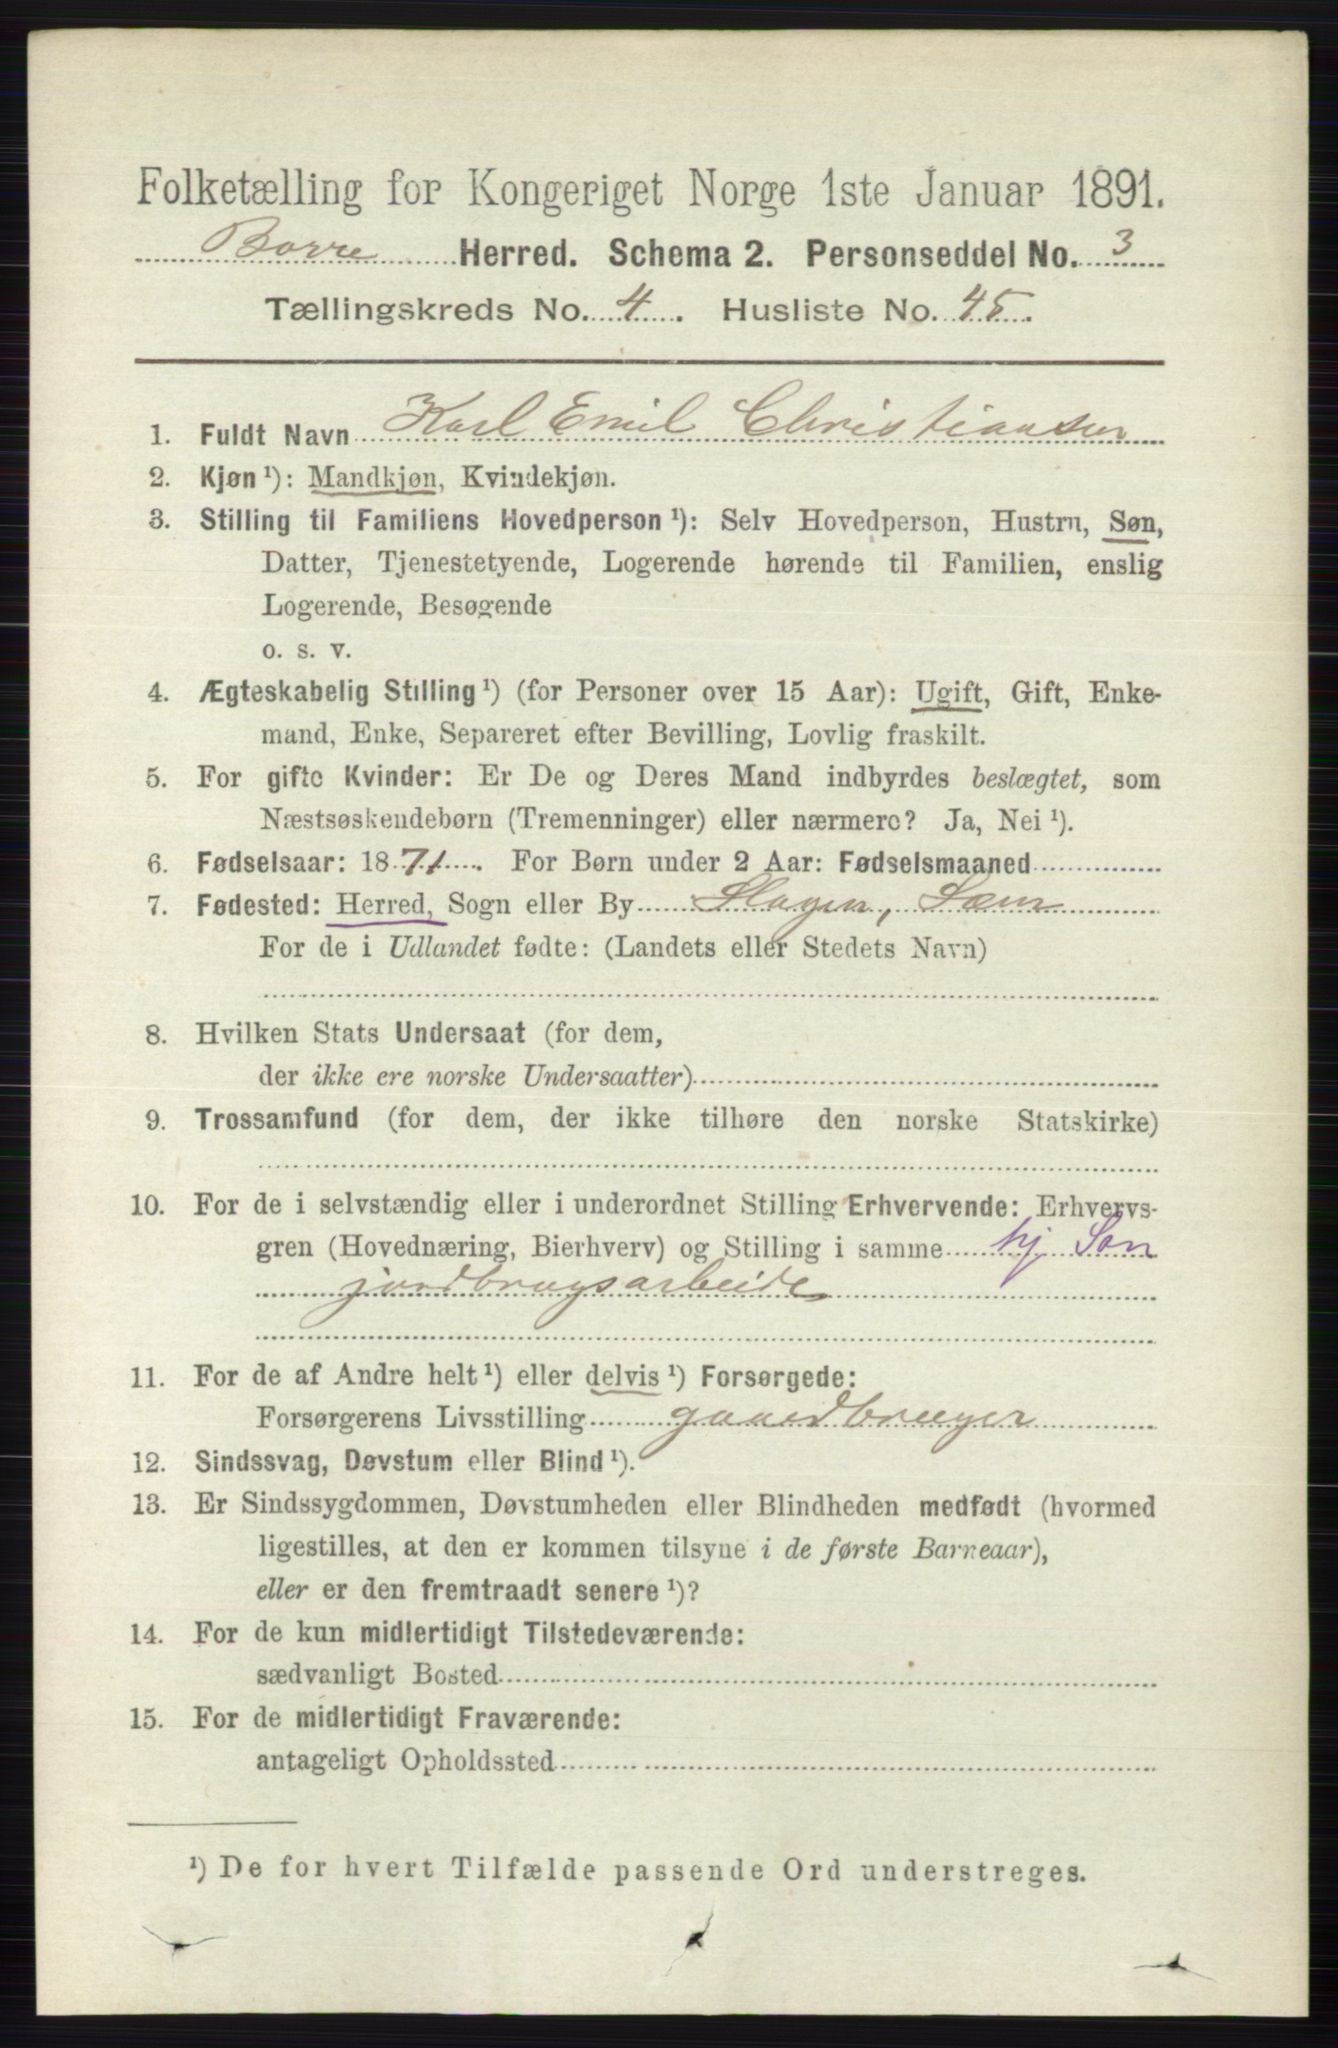 Folketælling for Kongeriget Norge 1ste Januar 1891.
Borre Herred. Schema 2. Personseddel No. 3
Tællingskreds No. 4. Husliste No. 45.
1. Fuldt Navn Karl Emil Christiansen
2. Kjøn ¹): Mandkjøn, Kvindekjøn.
3. Stilling til Familiens Hovedperson ¹): Selv Hovedperson, Hustru, Søn,
Datter, Tjenestetyende, Logerende hørende til Familien, enslig
Logerende, Besøgende
o. s. v.
4. Ægteskabelig Stilling ¹) (for Personer over 15 Aar): Ugift, Gift, Enke-
mand, Enke, Separeret efter Bevilling, Lovlig fraskilt.
5. For gifte Kvinder: Er De og Deres Mand indbyrdes beslægtet, som
Næstsøskendebørn (Tremenninger) eller nærmere? Ja, Nei ¹).
6. Fødselsaar: 1871. For Børn under 2 Aar: Fødselsmaaned
7. Fødested: Herred, Sogn eller By Slagen, Sæm
For de i Udlandet fødte: (Landets eller Stedets Navn)
8. Hvilken Stats Undersaat (for dem,
der ikke ere norske Undersaatter)
9. Trossamfund (for dem, der ikke tilhøre den norske Statskirke)
10. For de i selvstændig eller i underordnet Stilling Erhvervende: Erhvervs-
gren (Hovednæring, Bierhverv) og Stilling i samme hj Søn
jordbrugsarbeide
11. For de af Andre helt ¹) eller delvis ¹) Forsørgede:
Forsørgerens Livsstilling gaardbruger
12. Sindssvag, Døvstum eller Blind ¹).
13. Er Sindssygdommen, Døvstumheden eller Blindheden medfødt (hvormed
ligestilles, at den er kommen tilsyne i de første Barneaar),
eller er den fremtraadt senere ¹)?
14. For de kun midlertidigt Tilstedeværende:
sædvanligt Bosted
15. For de midlertidigt Fraværende:
antageligt Opholdssted
¹) De for hvert Tilfælde passende Ord understreges.